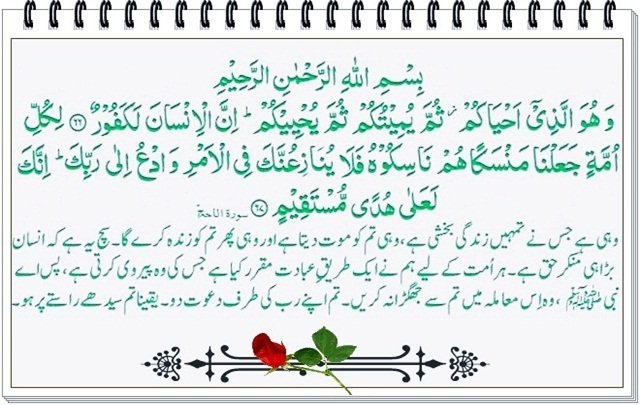 بِسْمِ اللهِ الرَّحْمٰنِ الرَّحِيْمِ
وَ هُوَ الَّذِیْۤ اَحْیَاكُمْ ؗ ثُمَّ یُمِیْتُكُمْ ثُمَّ یُحْیِیْكُمْ ؕ اِنَّ الْاِنْسَانَ لَكَفُوْرٌ ﴿۶۶﴾ لِكُلِّ
اُمَّةٍ جَعَلْنَا مَنْسَكًا هُمْ نَاسِكُوْهُ فَلَا یُنَازِعُنَّكَ فِی الْاَمْرِ وَ ادْعُ اِلٰی رَبِّكَ ؕ اِنَّكَ
لَعَلٰی هُدًی مُّسْتَقِیْمٍ ﴿۶۷﴾ سورة الحج
وہی ہے جس نے تمہیں زندگی بخشی ہے، وہی تم کو موت دیتا ہے اور وہی پھر تم کو زندہ کرے گا۔ سچ یہ ہے کہ انسان
بڑا ہی منکرِ حق ہے۔ ہر اُمت کے لیے ہم نے ایک طریقِ عبادت مقرر کیا ہے جس کی وہ پیروی کرتی ہے، پس اے
نبی ﷺ، وہ اِس معاملہ میں تم سے جھگڑا نہ کریں۔ تم اپنے رب کی طرف دعوت دو۔ یقیناً تم سیدھے راستے پر ہو۔